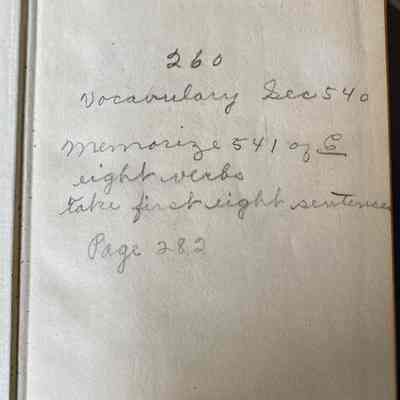 260
Vocabulary Sec 540
Memorize 541 of C
eight verbs
take first eight sentences
Page 282